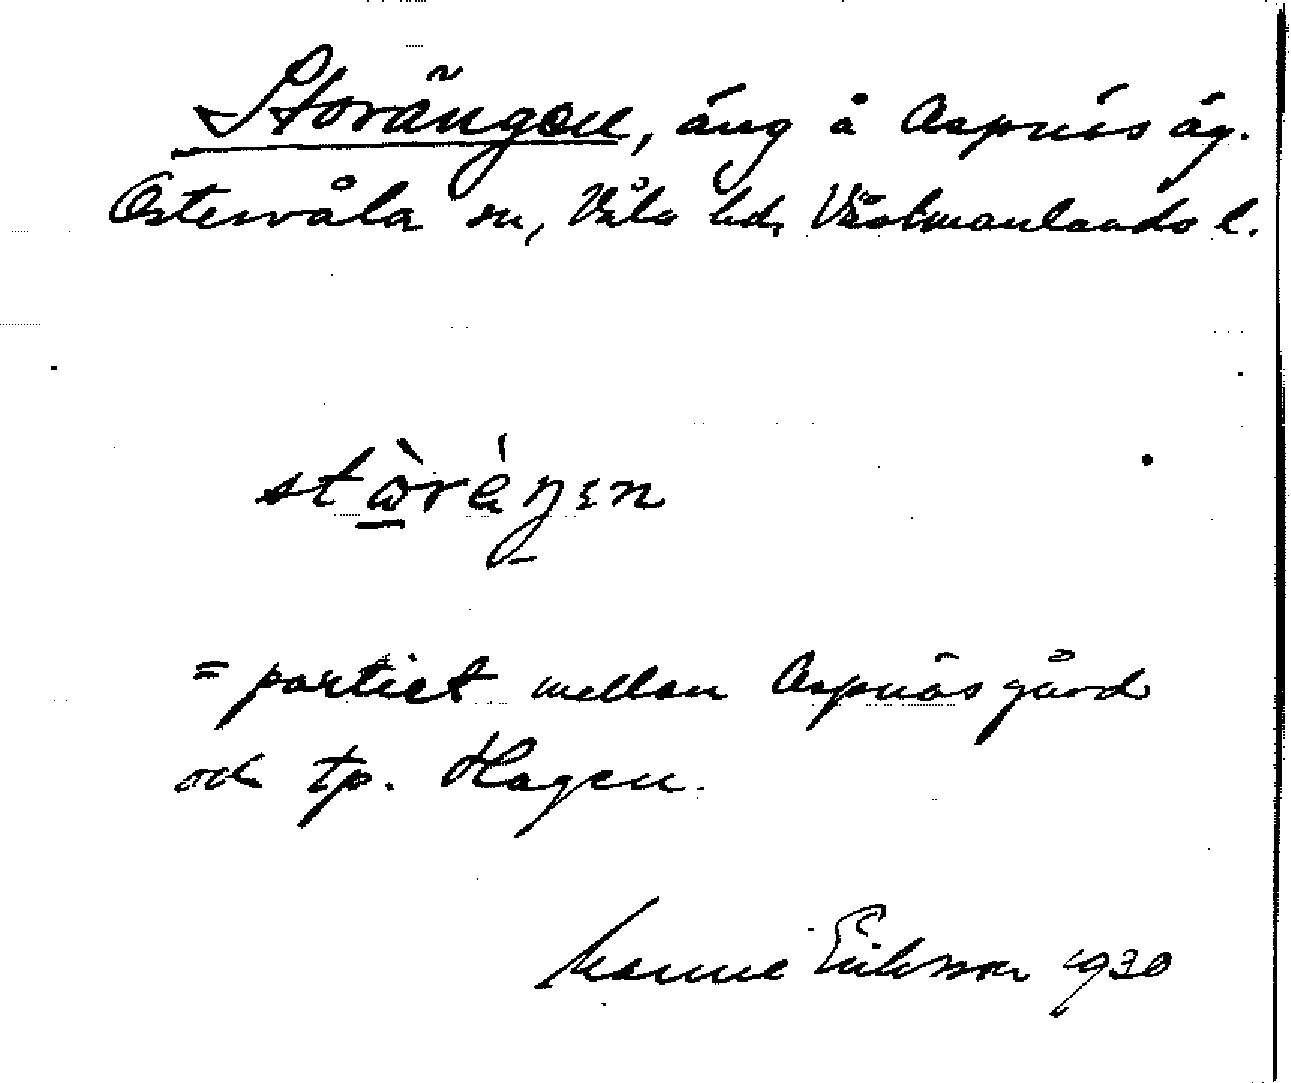 Storängen, äng å Aspnäs äg.
Östervåla sn, Våla hd, Västmanlands l.
stòrèŋɛn
= partiet mellan Aspnäs gård
och tp. Hagen.
Manne Eriksson 1930